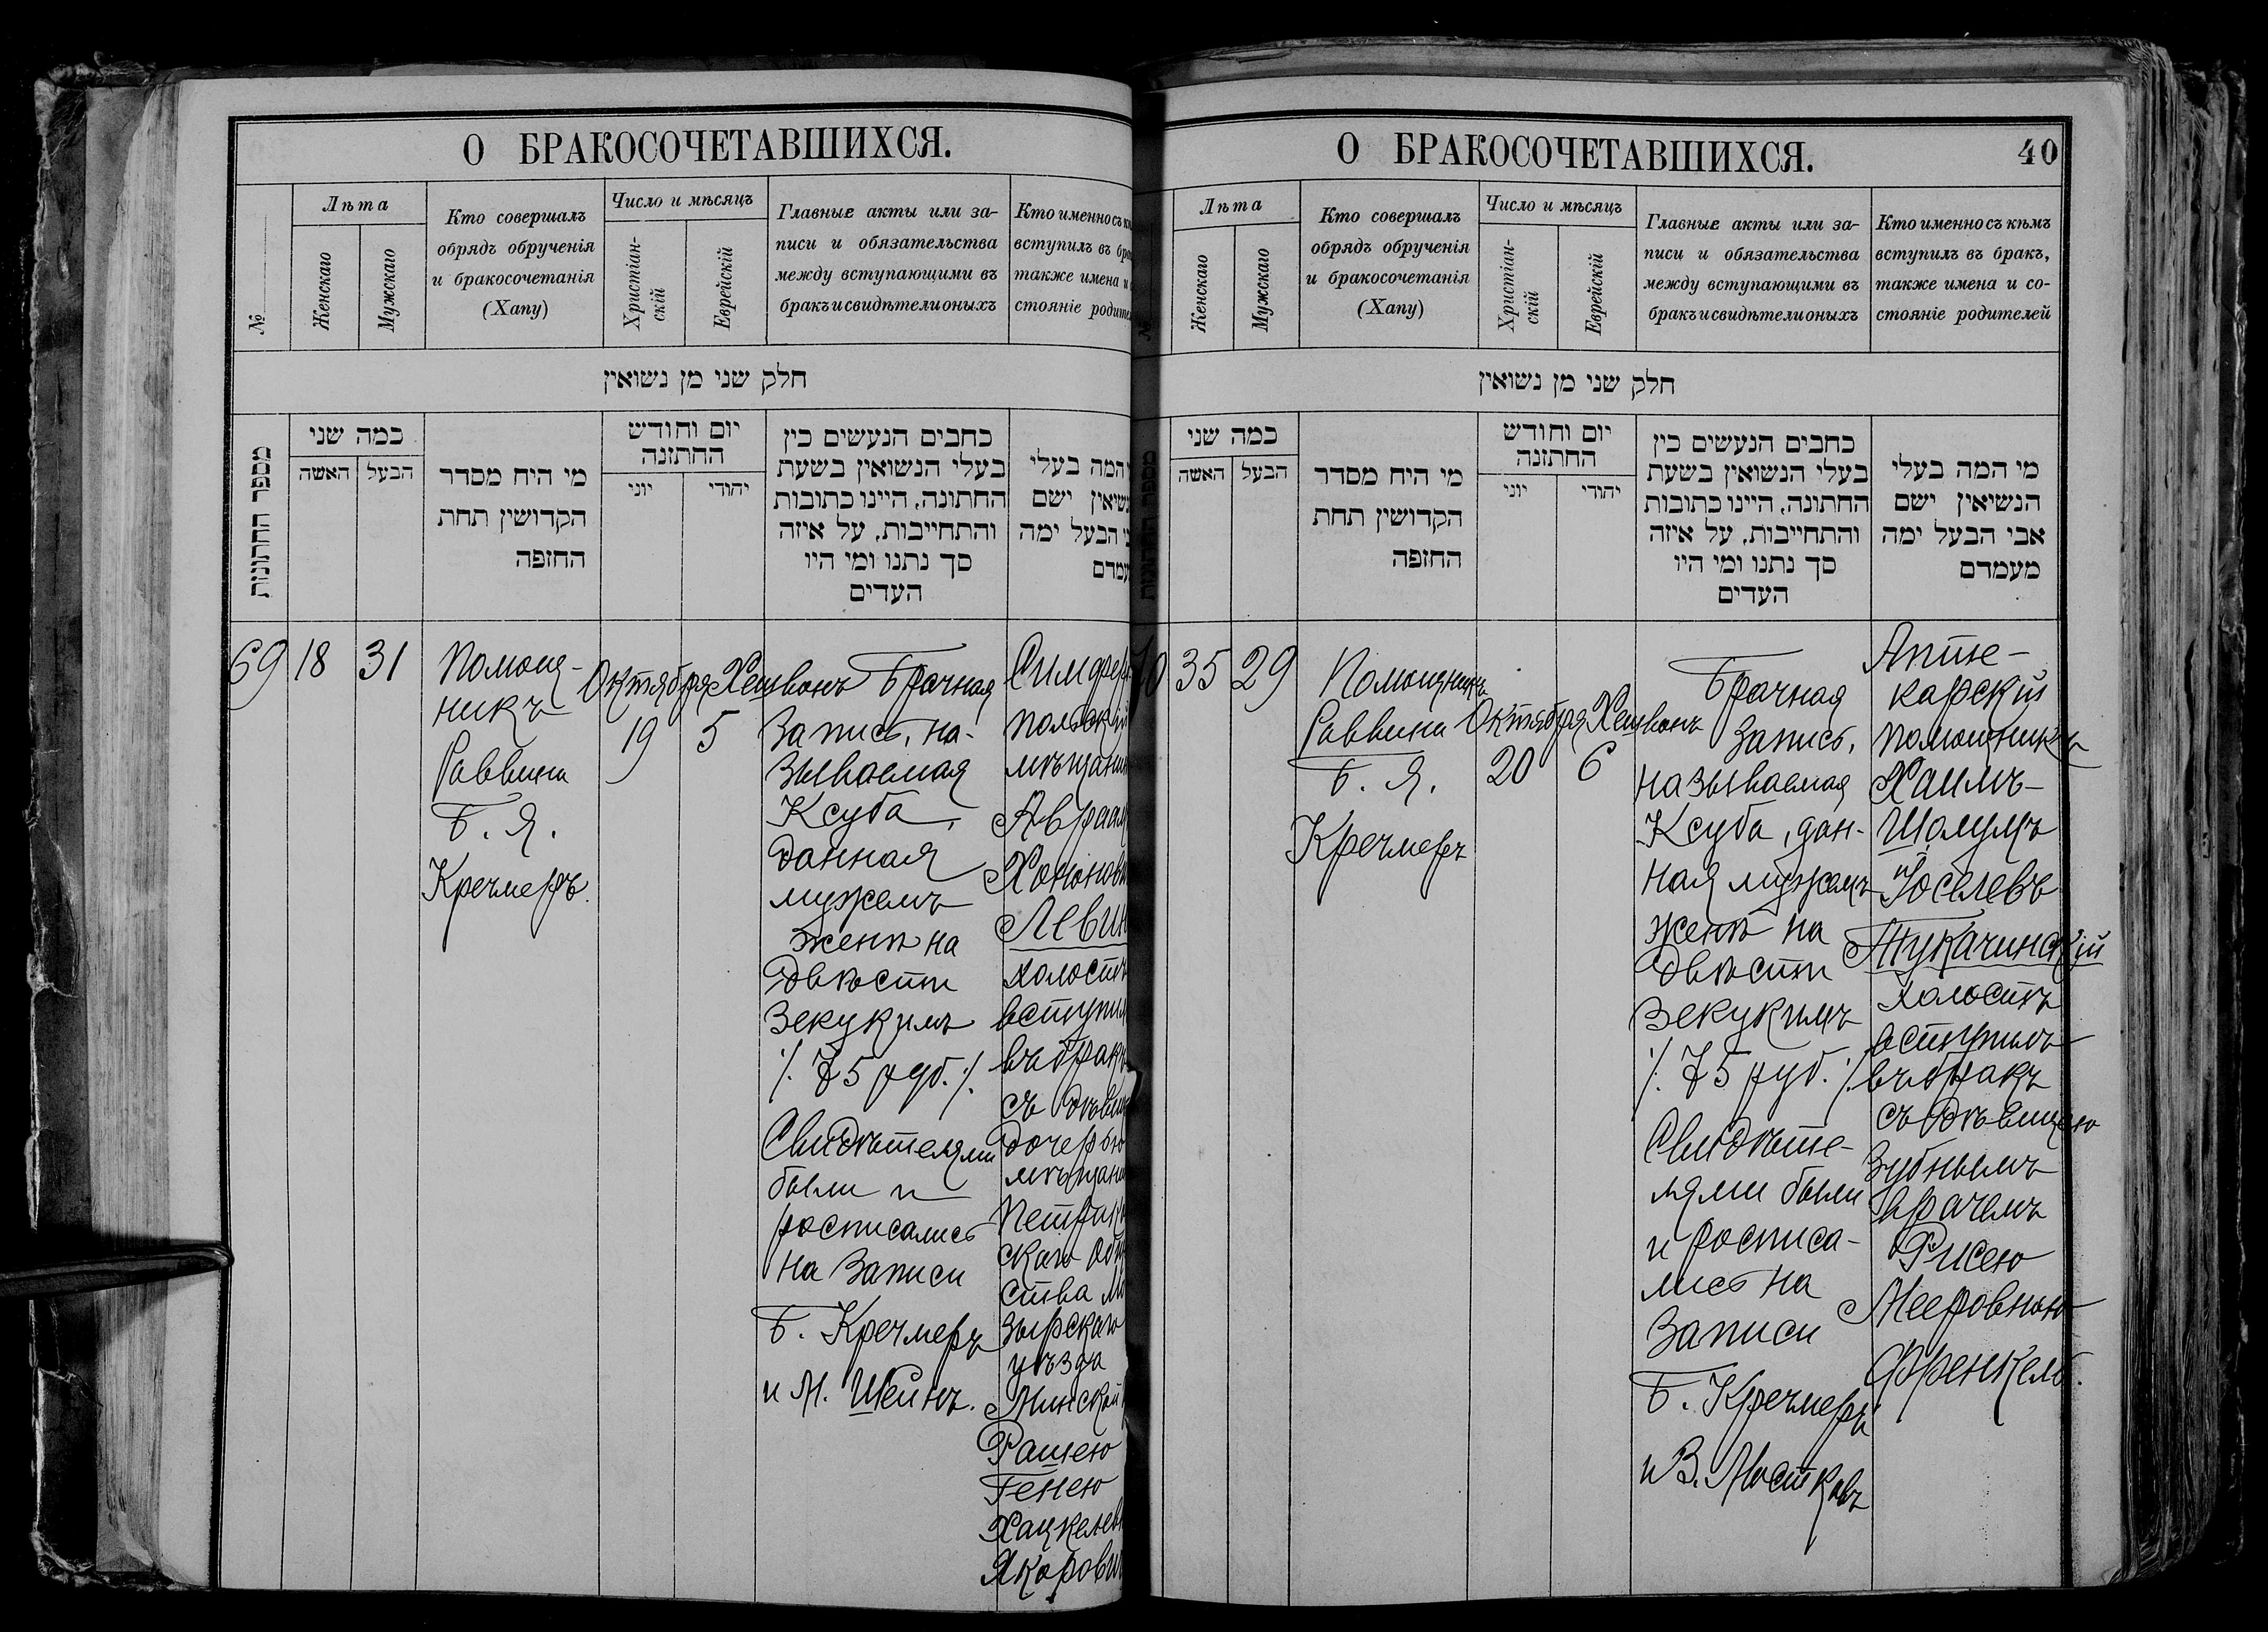 О БРАКОСОЧЕТАВШИХСЯ.
№
Лѣта
Женскаго
Мужскаго
Кто совершалъ
обрядъ обрученія
и бракосочетанія
(Хапу)
Число и мѣсяцъ
Христіан-
скій
Еврейскій
Главные акты или за-
писи и обязательства
между вступающими въ
бракъ и свидѣтели оныхъ
Кто именно съ
вступилъ въ
также имена и
стояніе
חלק שני מן נשואין
מספר החתונות
כמה שני
האשה
הבעל
מי היח מסדר
הקדושין תחת
החזפה
יום וחודש
החתזנה
יוני
יהודי
כחבים הנעשים כין
בעלי הנשואין בשעת
החתונה, היינו כתובות
והתחייבות, על איזה
סך נתנו ומי היו
העדים
המה בעלי
ישם
הבעל ימה
69
18
31
Помощ-
никъ
Раввина
Б. Я.
Кречмеръ.
Октября
19
Хешвонъ
5
Брачная
Запись, на-
зываемая
Ксуба,
данная
мужемъ
женѣ на
двѣсти
Зекукимъ
./. 75 руб. ./.
Свидѣтелями
были и
росписались
на Записи
Б. Кречмеръ
и М. Шейнъ.
Симфер
польскій
мѣщанин
Авраам
Хононов
Левин
холостъ
вступил
въ бракъ
съ дѣвиц
дочерью
мѣщани
Петрик
скаго Общ
ства Мо
зырскаго
уѣзда
Минской
Рашею
Генею
Хацкелев
Якорович
О БРАКОСОЧЕТАВШИХСЯ.
40
Лѣта
Женскаго
Мужскаго
Кто совершалъ
обрядъ обрученія
и бракосочетанія
(Хапу)
Число и мѣсяцъ
Христіан-
скій
Еврейскій
Главные акты или за-
писи и обязательства
между вступающими въ
бракъ и свидѣтели оныхъ
Кто именно съ кѣмъ
вступилъ въ бракъ,
также имена и со-
стояніе родителей
חלק שני מן נשואין
כמה שני
האשה
הבעל
מי היח מסדר
הקדושין תחת
החזפה
יום וחודש
החתזנה
יוני
יהודי
כחבים הנעשים כין
בעלי הנשואין בשעת
החתונה, היינו כתובות
והתחייבות, על איזה
סך נתנו ומי היו
העדים
מי המה בעלי
הנשיאין ישם
אבי הבעל ימה
מעמדם
70
35
29
Помощникъ
Раввина
Б. Я.
Кречмеръ
Октября
20
Хешвонъ
6
Брачная
Запись,
называемая
Ксуба, дан-
ная мужемъ
женѣ на
двѣсти
Зекукимъ
./. 75 руб. ./.
Свидѣте-
лями были
и росписа-
лись на
Записи
Б. Кречмеръ
и В. Мостковъ
Апте-
карскій
помощникъ
Хаимъ-
Шолумъ
Іоселевъ
Тукачинскій
холостъ
вступилъ
въ бракъ
съ дѣвицею
Зубнымъ
врачемъ
Рисею
Мееровною
Френкель.